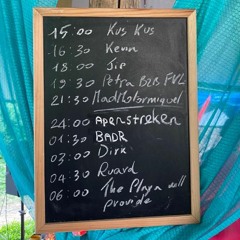 15:00 Kus Kus
16:30 Kevin
18:00 Jie
19:30 Petra B2B FVL
21:30
24:00 Apenstreken
01:30 BADR
03:00 Dirk
04:30 Ruard
06:00 The Playa will
provide